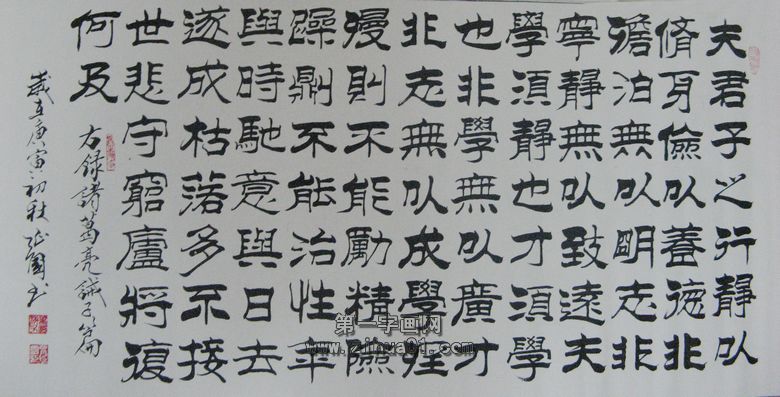 夫君子之行靜以
脩身儉以養德非
澹泊無以明志非
寧靜無以致遠夫
學須靜也才須學
也非學無以廣才
非志無以成學淫
漫則不能勵精險
躁則不能治性年
與時馳意與日去
遂成枯落多不接
世悲守窮廬將復
何及
右録諸葛亮誡子篇
歲在庚寅初秋 國書
第一字画网
www.zihua01.com